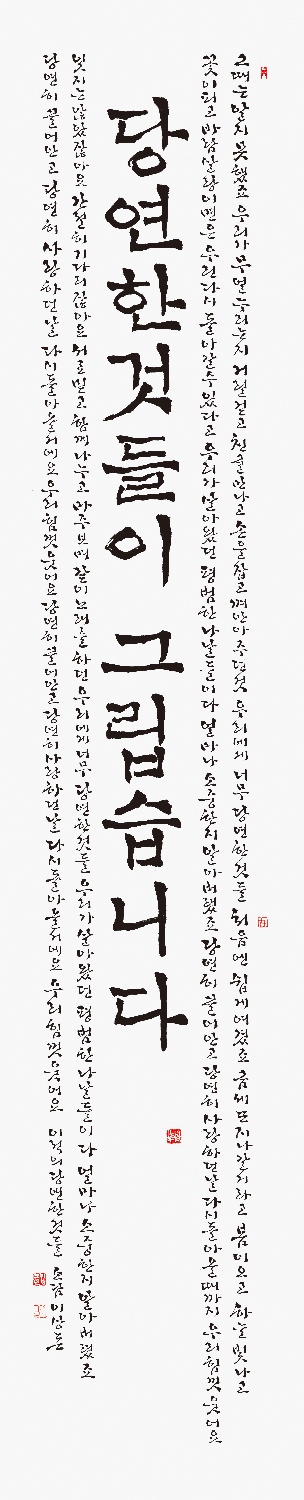 그때는 알지 못했죠 우리가 무얼 누리는지 거릴 걷고 친굴 만나고 손을 잡고 껴안아 주던 것 우리에게 너무 당연한 것들 처음엔 쉽게 여겼죠 금세 또 지나갈 거라고 봄이 오고 하늘 빛나고
꽃이 피고 바람 살랑이면은 우린 다시 돌아갈 수 있다고 우리가 살아왔던 평범한 나날들이 다 얼마나 소중한지 알아버렸죠 당연히 끌어안고 당연히 사랑하던 날 다시 돌아올 때까지 우리 힘껏 웃어요
당연한 것들이 그립습니다
잊지는 않았잖아요 간절히 기다리잖아요 서로 믿고 함께 나누고 마주보며 같이 노래를 하던 우리에게 너무 당연한 것들 우리가 살아왔던 평범한 나날들이 다 얼마나 소중한지 알아버렸죠
당연히 끌어안고 당연히 사랑하던 날 다시 돌아올 거예요 우리 힘껏 웃어요 당연히 끌어안고 당연히 사랑하던 날 다시 돌아올 거예요 우리 힘껏 웃어요 이적의 당연한 것들